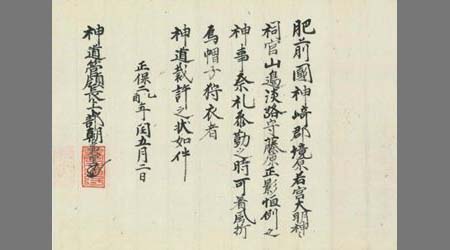 肥前國神崎郡境原若宮大明神
祠官山邉淡路守藤原正影恒例之
神事祭礼参勤之時可着風折
烏帽子狩衣者
神道裁許之状如件
正保二乙酉年閏五月二日
神道管領長上卜部朝臣